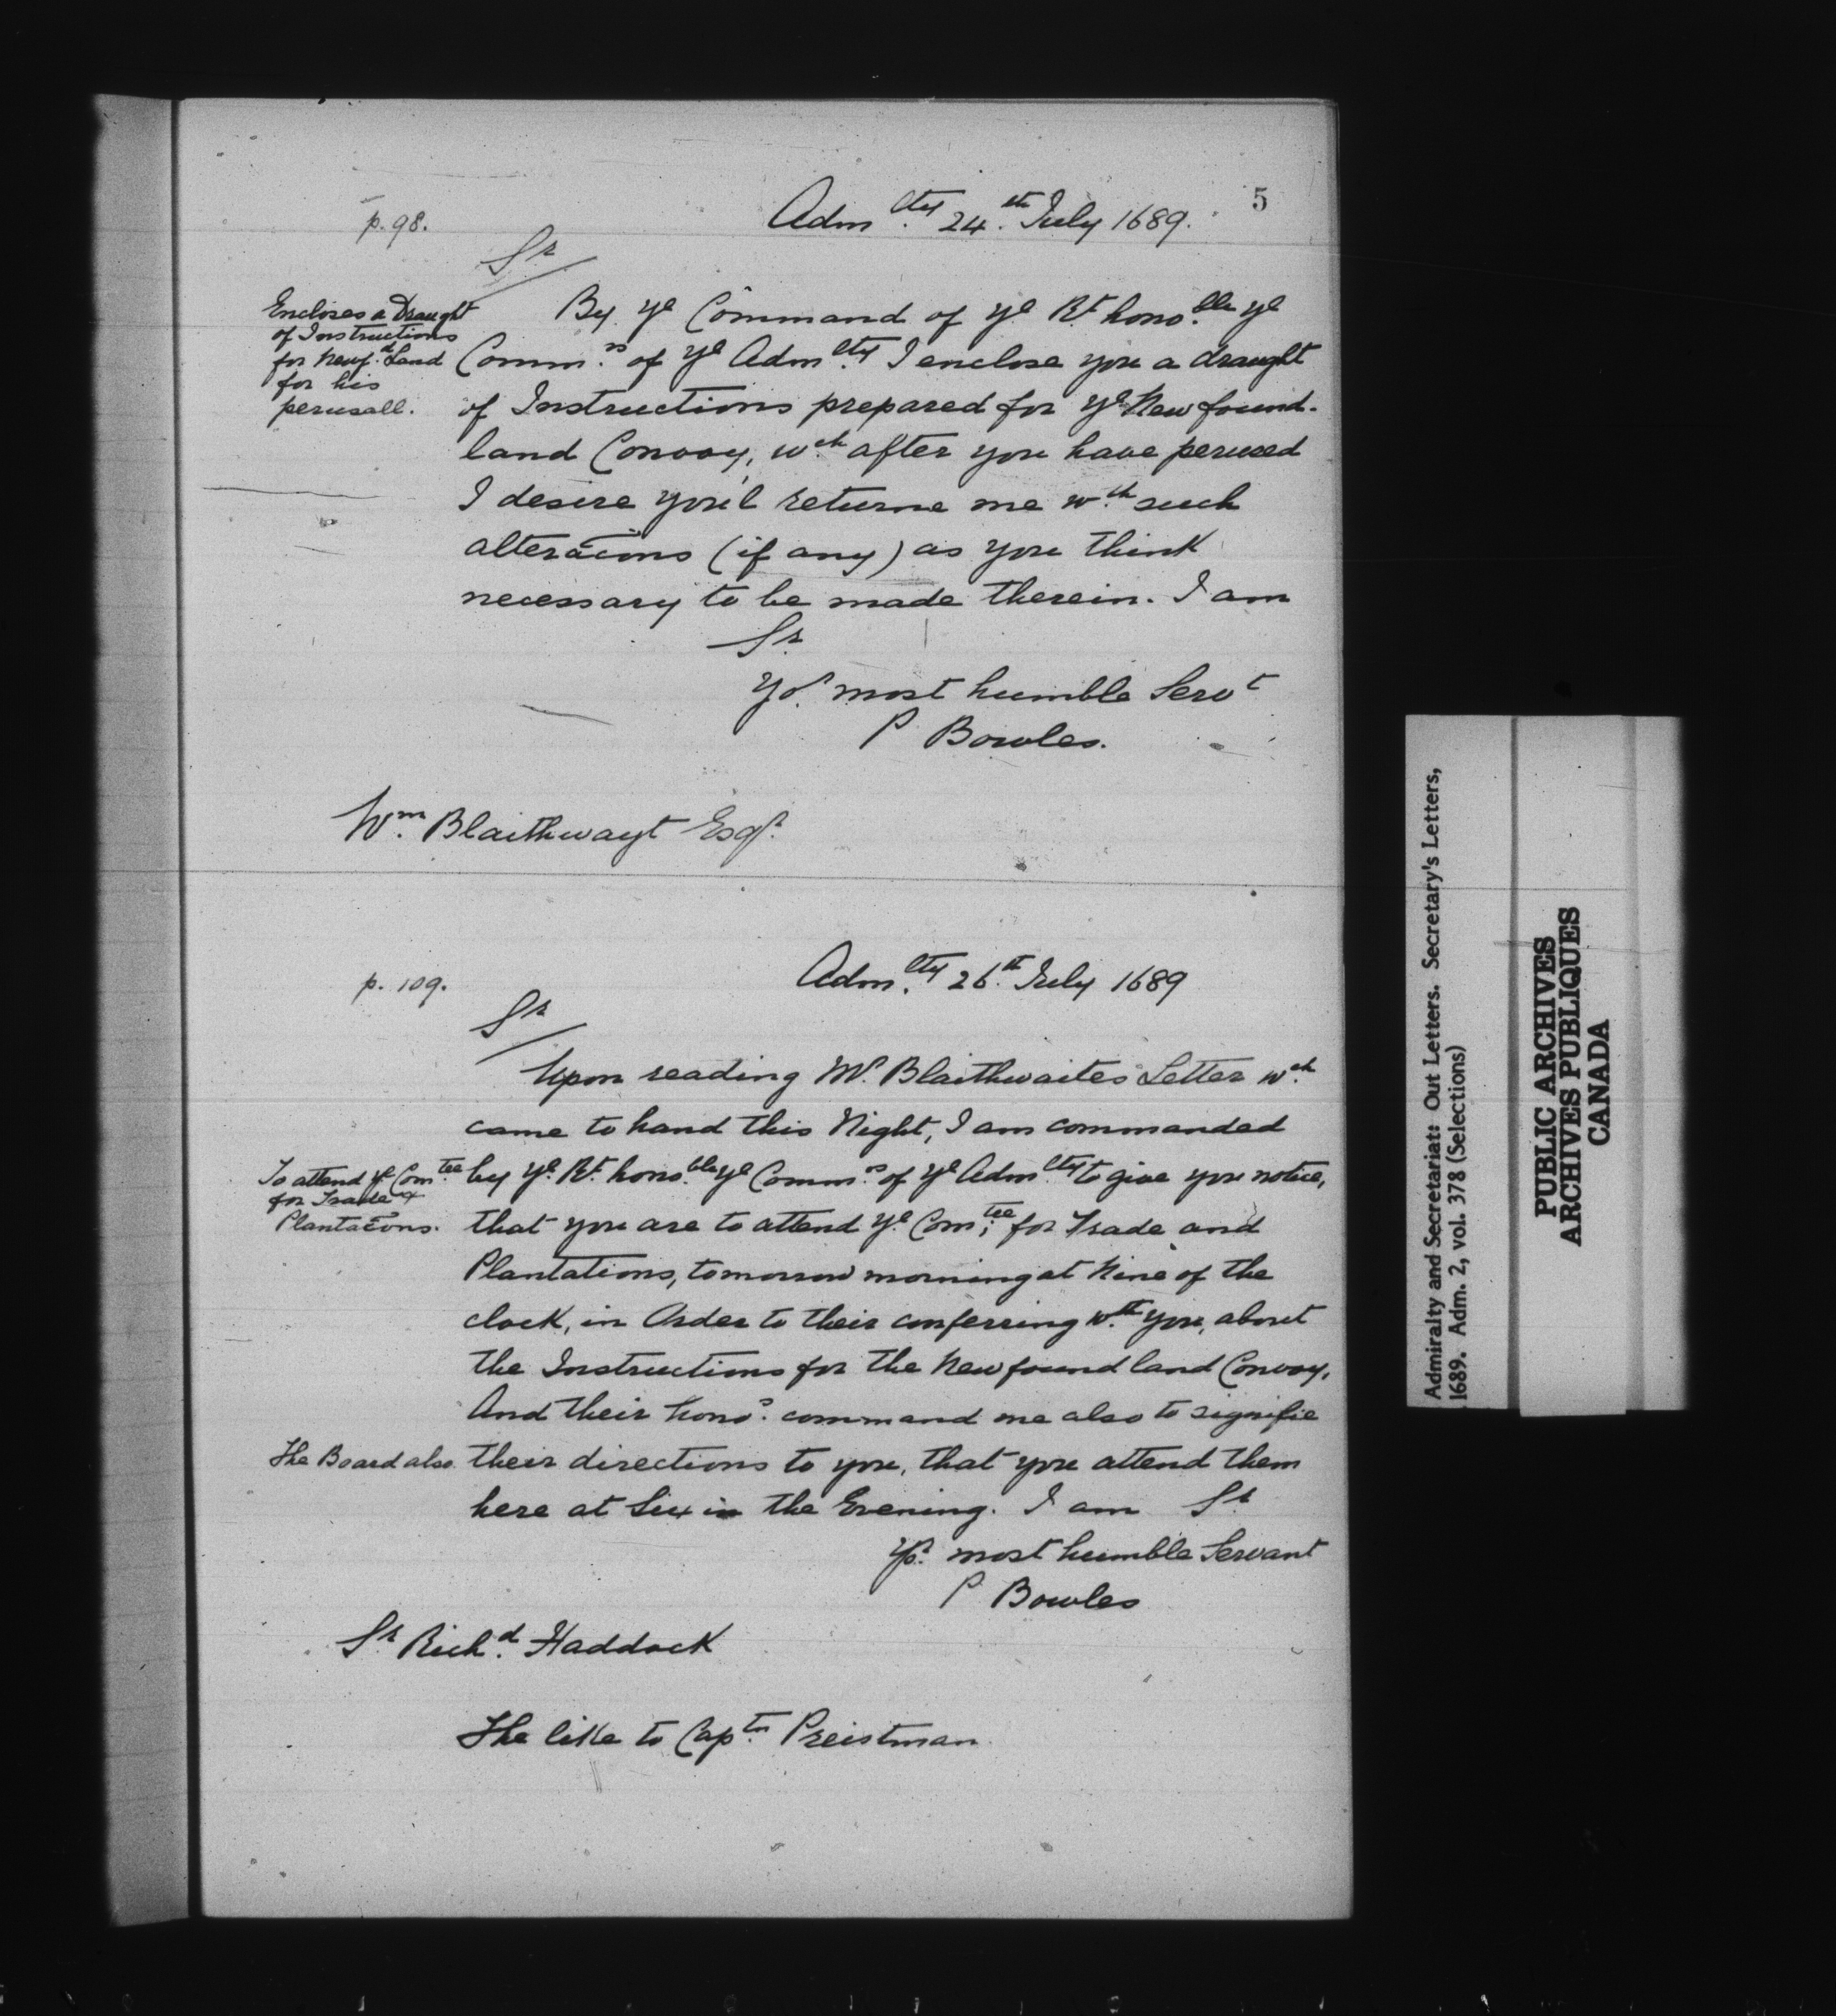 5
p. 98.
Adm.lty 24.th July 1689.
Sr
Encloses a Draught
of Instructions
for Newf.d Land
for his
perusall.
By ye Command of ye Rt. hono.ble ye
Comm.rs of ye Adm.lty I enclose you a draught
of Instructions prepared for ye Newfound-
land Convoy, w.ch after you have perused
I desire you'l returne me w.th such
alteracōns (if any) as you think
necessary to be made therein. I am
Sr.
Yor. most humble Servt
P Bowles.
Wm. Blaithwayt Esqr.
p. 109.
Adm.lty 26.th July 1689
Sr
Upon reading Mr. Blaithwaites Letter w.ch
came to hand this Night, I am commanded
To attend ye Com.tee
for Trade &
Plantacōns.
by ye. Rt. hono.ble ye Comm.rs of ye Adm.lty to give you notice,
that you are to attend ye. Com.tee for Trade and
Plantations, tomorrow morning at Nine of the
clock, in Order to their conferring w.th you, about
the Instructions for the Newfoundland Convoy,
And their hono.rs command me also to signifie
The Board also.
their directions to you, that you attend them
here at Six in the Evening. I am Sr.
Yor. most humble Servant
P Bowles
Sr Rich.d Haddock
The like to Cap.tn Preistman.
Admiralty and Secretariat: Out Letters. Secretary's Letters,
1689. Adm. 2, vol. 378 (Selections)
PUBLIC ARCHIVES
ARCHIVES PUBLIQUES
CANADA